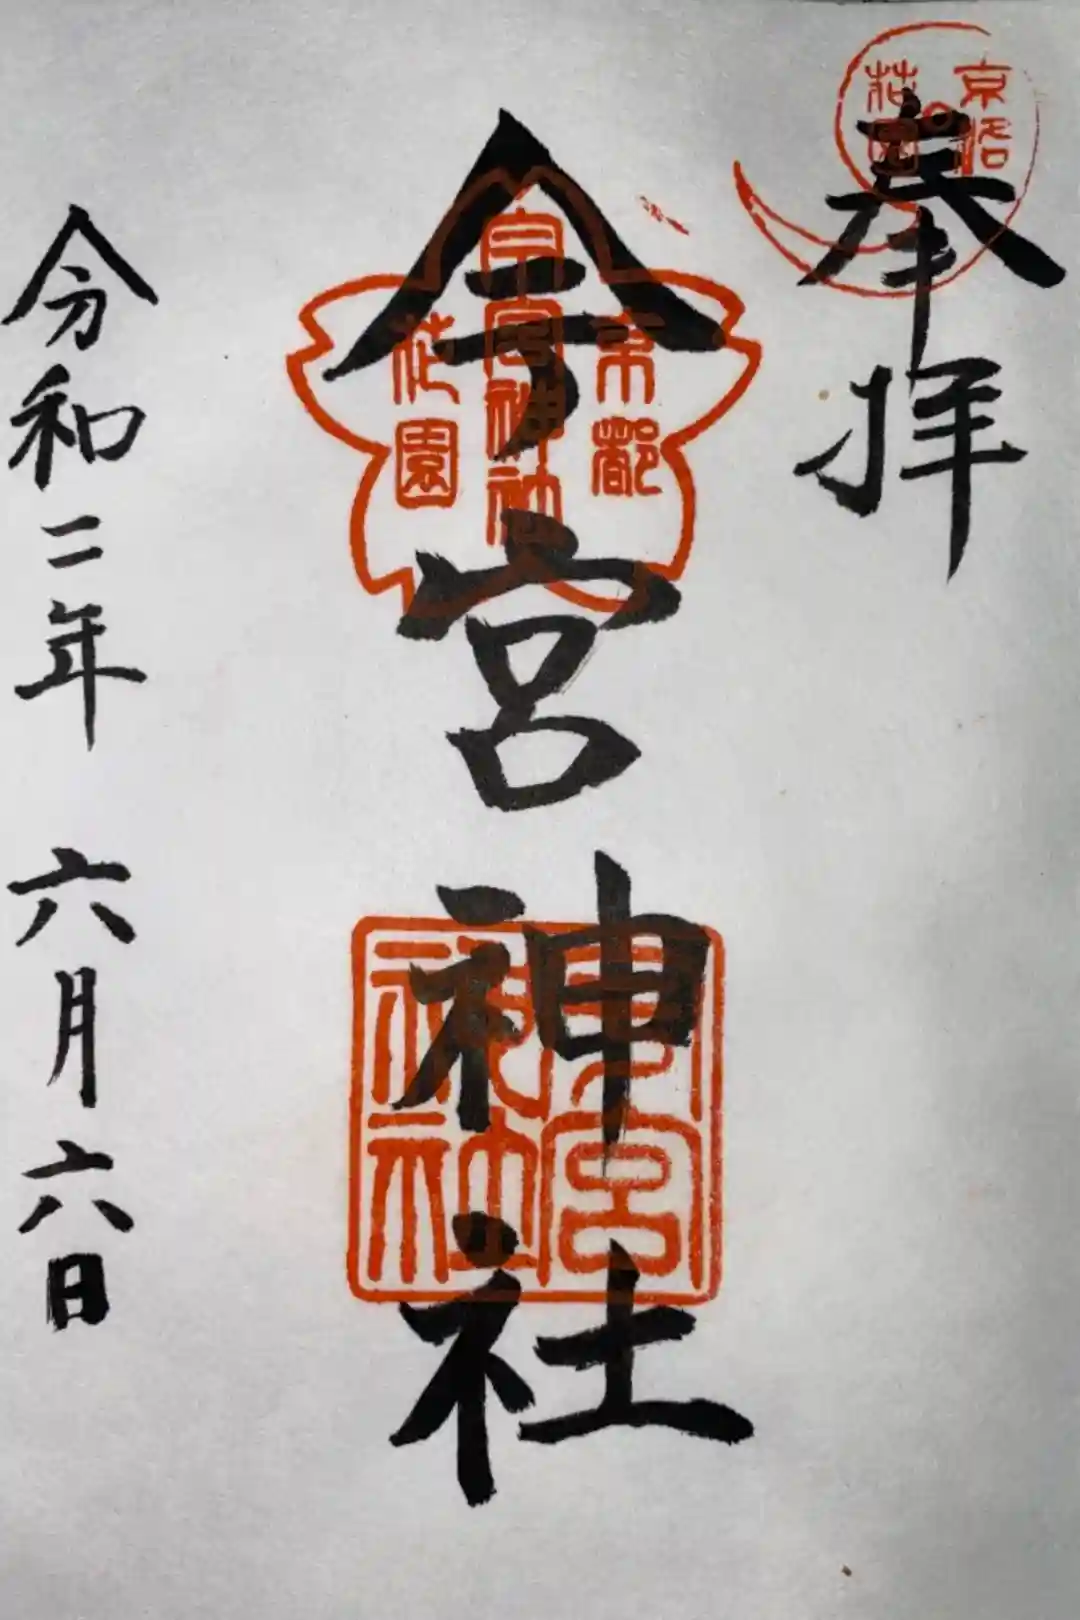 奉拝
今宮神社
京都
今宮神社
花園
今宮神社
京洛
花園
令和二年 六月六日